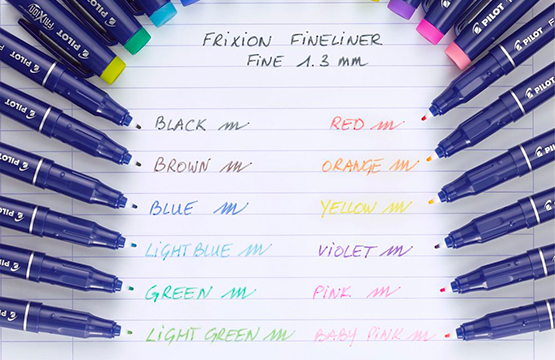 FRIXION FINELINER
FINE 1.3 mm
BLACK
RED
BROWN
ORANGE
BLUE
YELLOW
LIGHT BLUE
VIOLET
GREEN
PINK
LIGHT GREEN
BABY PINK
FRIXION
PILOT
PILOT
PILOT
PILOT
PILOT
PILOT
PILOT
PILOT
PILOT
PILOT
PILOT
PILOT